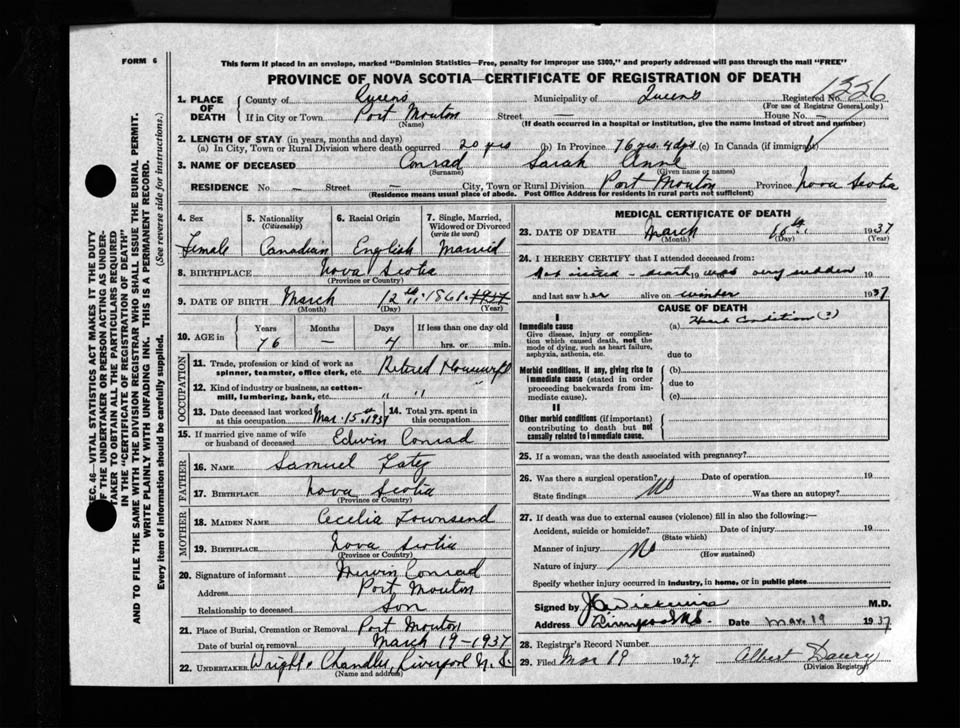 FORM 6
This form if placed in an envelope, marked "Dominion Statistics—Free, penalty for improper use $300," and properly addressed will pass through the mail "FREE"
PROVINCE OF NOVA SCOTIA—CERTIFICATE OF REGISTRATION OF DEATH
1. PLACE OF DEATH County of Queens Municipality of Queens Registered No. 1326
(For use of Registrar General only)
If in City or Town Port Mouton Street — House No. —
(Name) (If death occurred in a hospital or institution, give the name instead of street and number)
2. LENGTH OF STAY (in years, months and days)
(a) In City, Town or Rural Division where death occurred 20 yrs (b) In Province 76 yrs. 4 dys (c) In Canada (if immigrant)
3. NAME OF DECEASED Conrad Sarah Anne
(Surname) (Given name or names)
RESIDENCE No — Street — City, Town or Rural Division Port Mouton Province Nova Scotia
(Residence means usual place of abode. Post Office Address for residents in rural parts not sufficient)
4. Sex 5. Nationality (Citizenship) 6. Racial Origin 7. Single, Married, Widowed or Divorced (write the word)
Female Canadian English Married
8. BIRTHPLACE Nova Scotia
(Province or Country)
9. DATE OF BIRTH March 12th 1861. 1937
(Month) (Day) (Year)
10. AGE in Years Months Days If less than one day old
76 — 4 hrs. or min.
OCCUPATION
11. Trade, profession or kind of work as spinner, teamster, office clerk, etc. Retired Housewife
12. Kind of industry or business, as cotton-mill, lumbering, bank, etc. " " "
13. Date deceased last worked at this occupation Mar. 15th 1937 14. Total yrs. spent in this occupation
15. If married give name of wife or husband of deceased Edwin Conrad
FATHER
16. NAME Samuel
17. BIRTHPLACE Nova Scotia
(Province or Country)
MOTHER
18. MAIDEN NAME Cecelia Townsend
19. BIRTHPLACE Nova Scotia
(Province or Country)
20. Signature of informant Mervin Conrad
Address Port Mouton
Relationship to deceased Son
21. Place of Burial, Cremation or Removal Port Mouton
Date of burial or removal March 19-1937
22. UNDERTAKER Wright & Chandler, Liverpool N.S.
(Name and address)
MEDICAL CERTIFICATE OF DEATH
23. DATE OF DEATH March 16th 1937
(Month) (Day) (Year)
24. I HEREBY CERTIFY that I attended deceased from:
Not visited - death 19 was very sudden 19
and last saw her alive on winter 1937
CAUSE OF DEATH
I
Immediate cause (a) Heart Condition (?)
Give disease, injury or complication which caused death, not the mode of dying, such as heart failure, asphyxia, asthenia, etc.
due to
Morbid conditions, if any, giving rise to immediate cause (stated in order proceeding backwards from immediate cause).
(b)
due to
(c)
II
Other morbid conditions (if important) contributing to death but not causally related to immediate cause.
25. If a woman, was the death associated with pregnancy?
26. Was there a surgical operation? No Date of operation 19
State findings Was there an autopsy?
27. If death was due to external causes (violence) fill in also the following:—
Accident, suicide or homicide? Date of injury 19
(State which)
Manner of injury No
(How sustained)
Nature of injury
Specify whether injury occurred in industry, in home, or in public place
Signed by M.D.
Address Liverpool N.S. Date Mar. 19 1937
28. Registrar's Record Number
29. Filed Mar 19 1937 Albert Daury
(Division Registrar)
SEC. 46—VITAL STATISTICS ACT MAKES IT THE DUTY
OF THE UNDERTAKER OR PERSON ACTING AS UNDER-
TAKER TO OBTAIN ALL THE PARTICULARS REQUIRED
IN THE "CERTIFICATE OF REGISTRATION OF DEATH"
AND TO FILE THE SAME WITH THE DIVISION REGISTRAR WHO SHALL ISSUE THE BURIAL PERMIT.
WRITE PLAINLY WITH UNFADING INK. THIS IS A PERMANENT RECORD.
Every item of information should be carefully supplied. (See reverse side for instructions.)